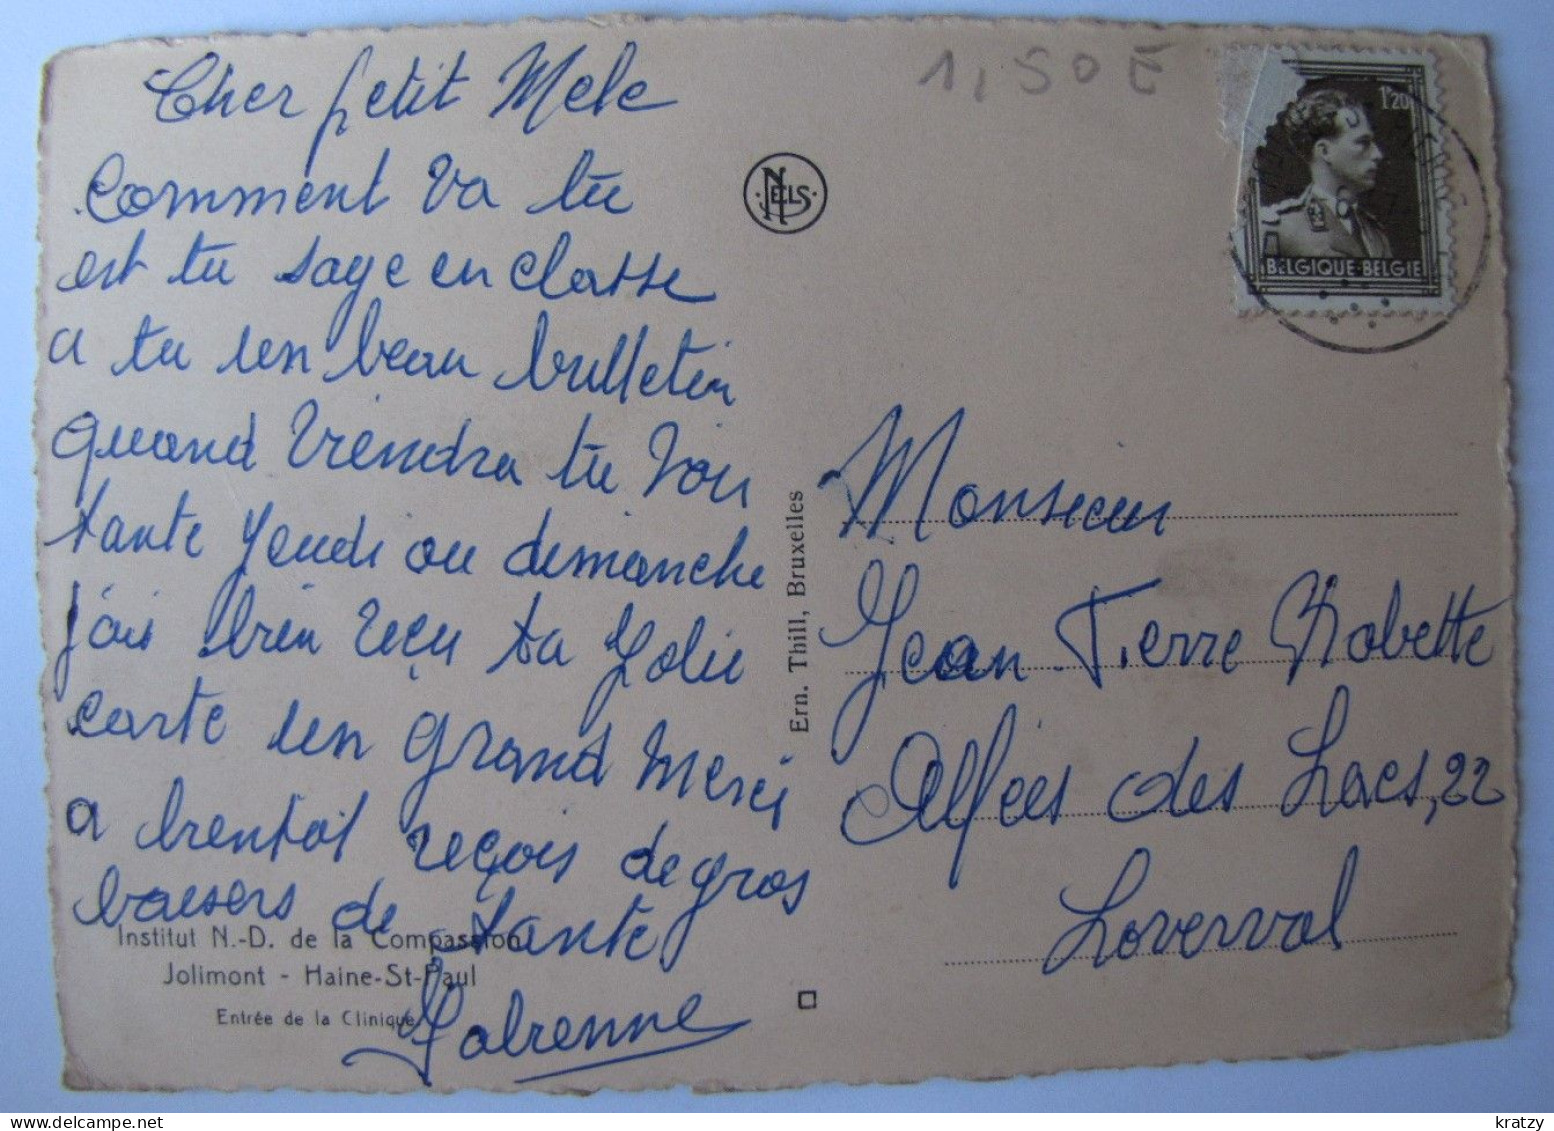 Cher petit Mele
Comment va tu
est tu sage en classe
a tu un beau bulletin
quand viendra tu voir
tante yeudi ou dimanche
j'ais bien reçu ta jolie
carte un grand merci
a bientôt reçois de gros
baisers de tante
Institut N.-D. de la Compassion
Jolimont - Haine-St-Paul
Entrée de la Clinique
NELS
Ern. Thill, Bruxelles
1,50 E
1F20
BELGIQUE-BELGIE
Monsieur
Jean Pierre Robette
Allées des Lacs, 22
Loverval
kratzy